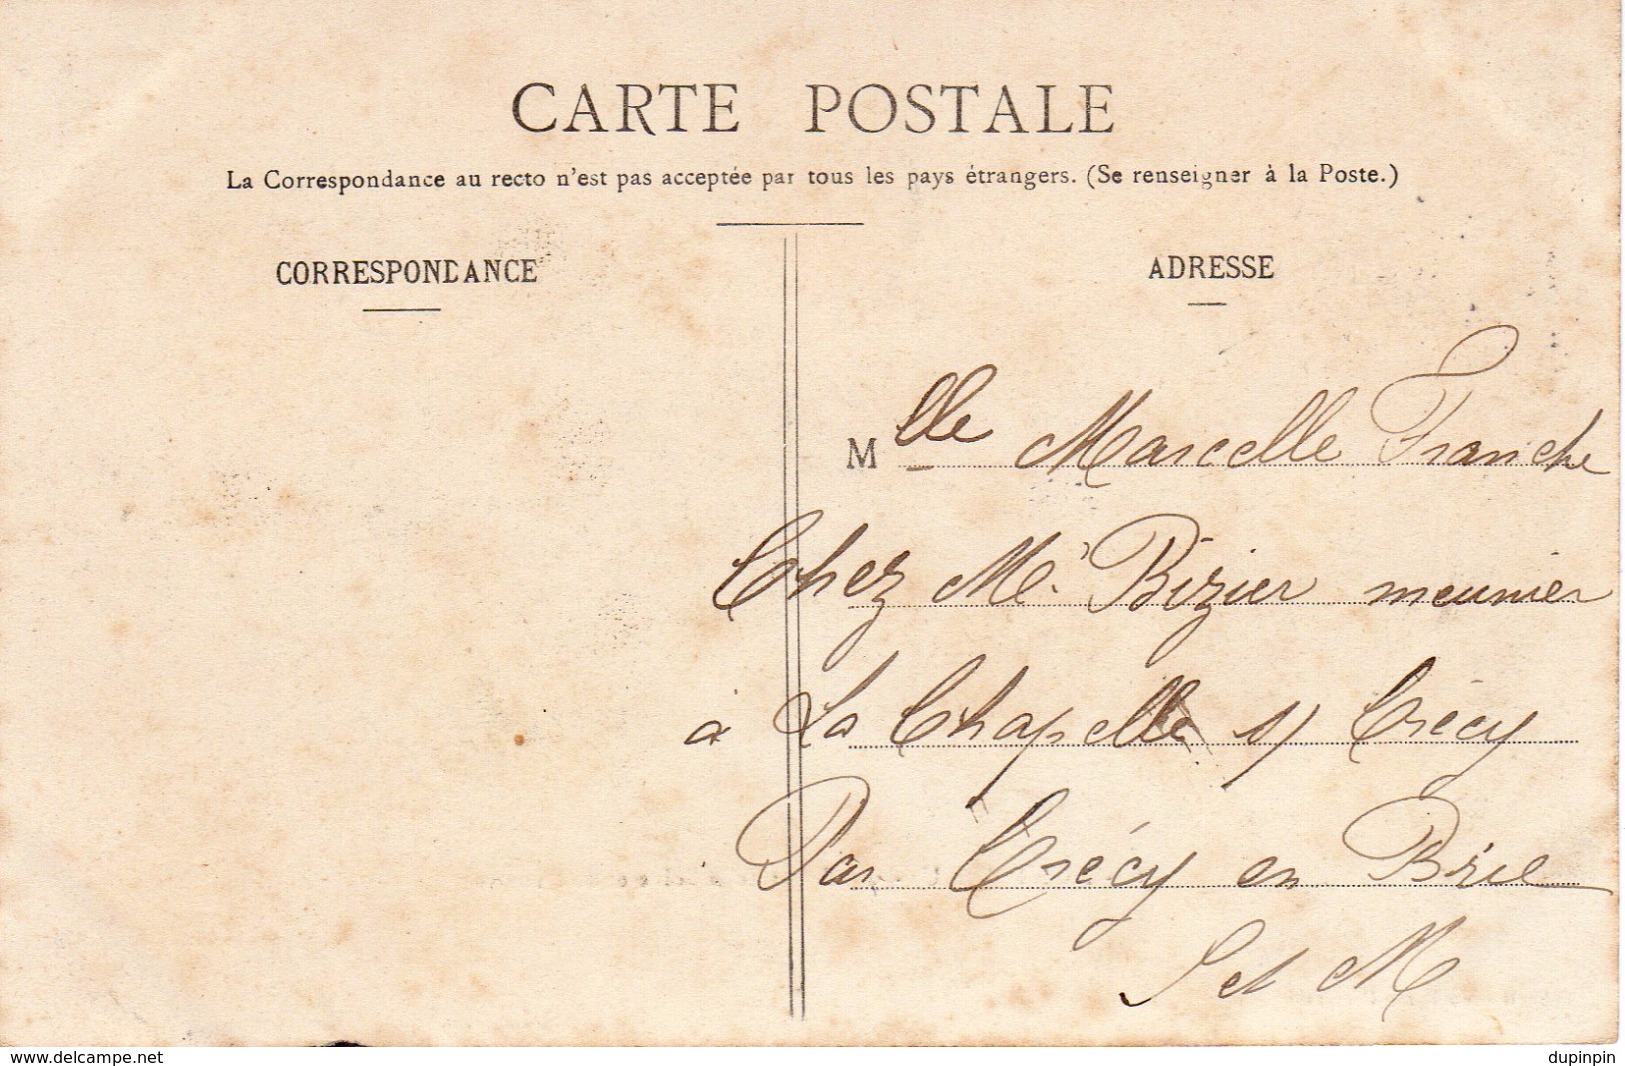 CARTE POSTALE
La Correspondance au recto n'est pas acceptée par tous les pays étrangers. (Se renseigner à la Poste.)
CORRESPONDANCE
ADRESSE
Mlle Marcelle Franche
Chez Mr Bizier meunier
à La Chapelle s/ Crécy
Par Crécy en Brie
S et M
www.delcampe.net
dupinpin